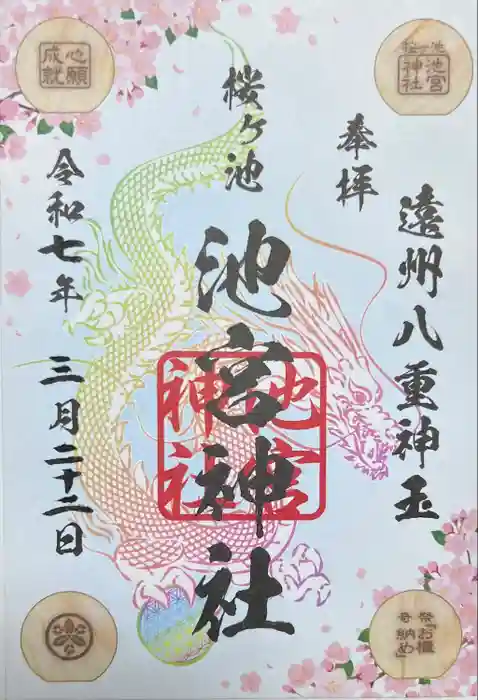 遠州八重神玉
奉拝
桜ヶ池
池宮神社
令和七年 三月二十二日
池宮
神社
心願
成就
桜ヶ池
池宮
神社
奇祭「お櫃
納め」